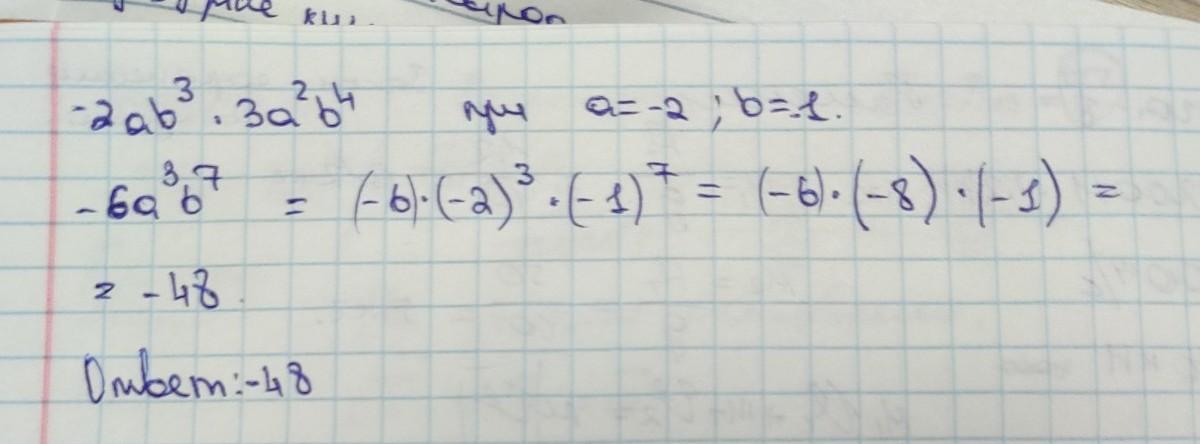 -2ab³ · 3a²b⁴ при a=-2; b=-1.
-6a³b⁷ = (-6)·(-2)³·(-1)⁷ = (-6)·(-8)·(-1) =
= -48.
Ответ:-48